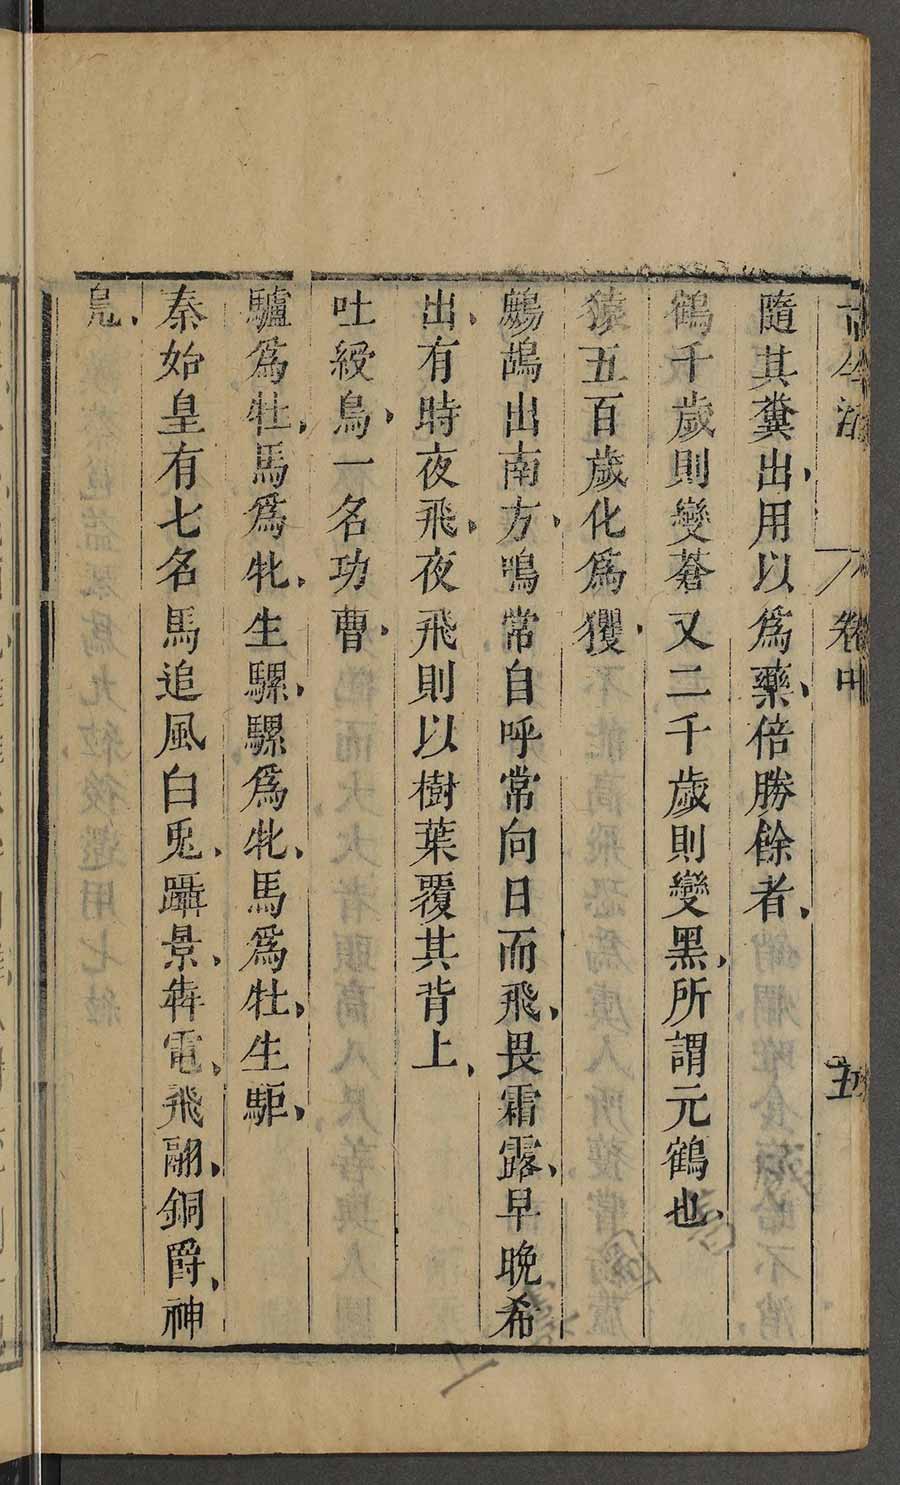 古今注 卷中 五
隨其糞出、用以爲藥、倍勝餘者、
鶴千歲則變蒼又二千歲則變黑、所謂元鶴也、
猿五百歲化爲玃、
鷓鴣出南方、鳴常自呼常向日而飛、畏霜露、早晚希
出、有時夜飛、夜飛則以樹葉覆其背上、
吐綬鳥、一名功曹、
驢爲牡、馬爲牝、生騾、騾爲牝、馬爲牡、生駏、
秦始皇有七名馬追風白兎、躡景、犇電、飛翮、銅爵、神
鳧、